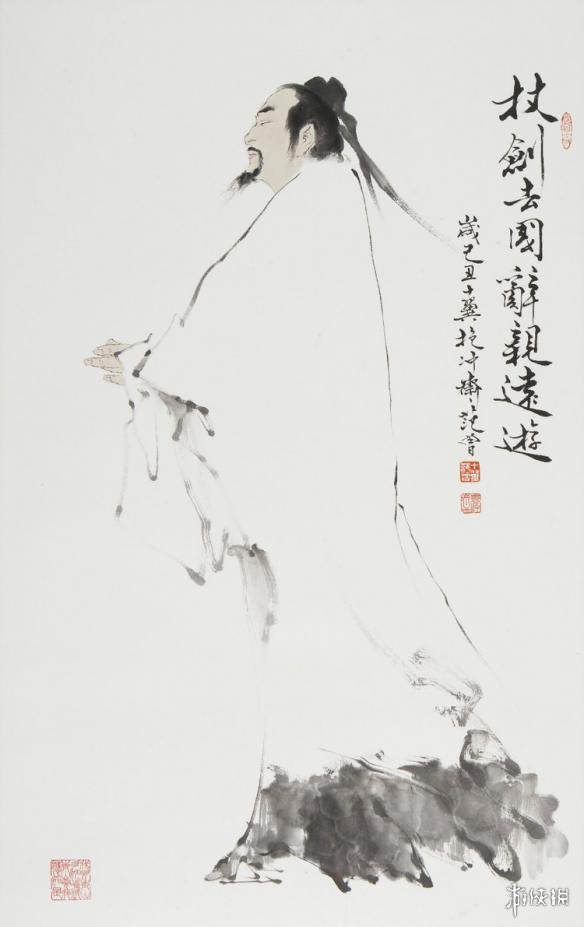 杖劍去國辭親遠遊
歲己丑十翼抱冲齋之范曾
游侠网